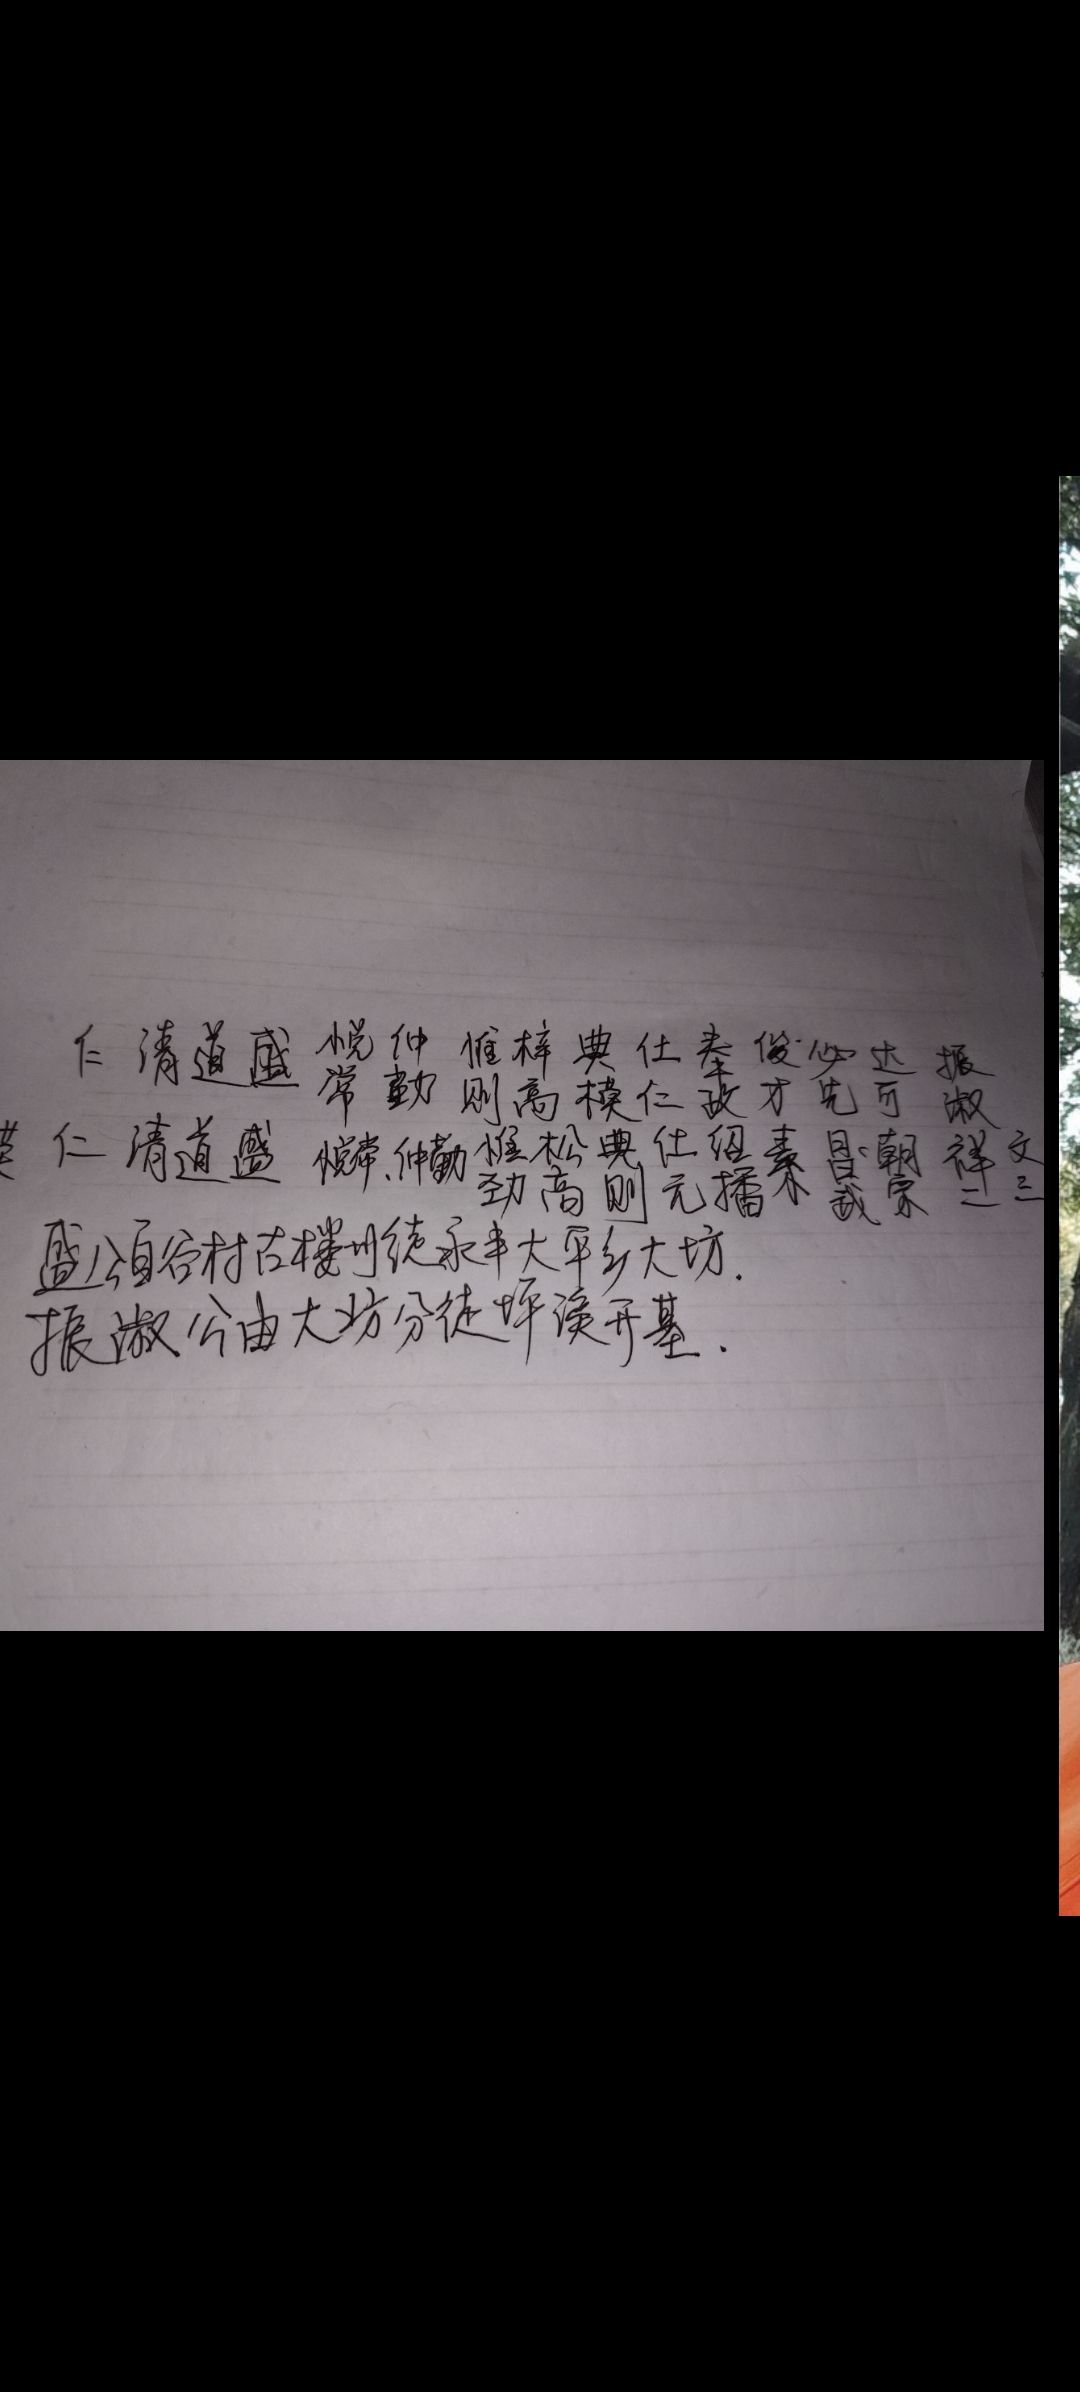 仁 清 道 盛 悦 仲 惟 梓 典 仕 奉 俊 必 达 振
常 勤 则 高 模 仁 政 才 先 可 淑
仁 清 道 盛 悦常、仲勤 惟 松 典 仕 绍 素 昌 朝 祥 文
劲 高 则 元 播 宗 二 三
盛公自谷村古楼州徒永丰大平乡大坊.
振淑公由大坊分徒坪溪开基.